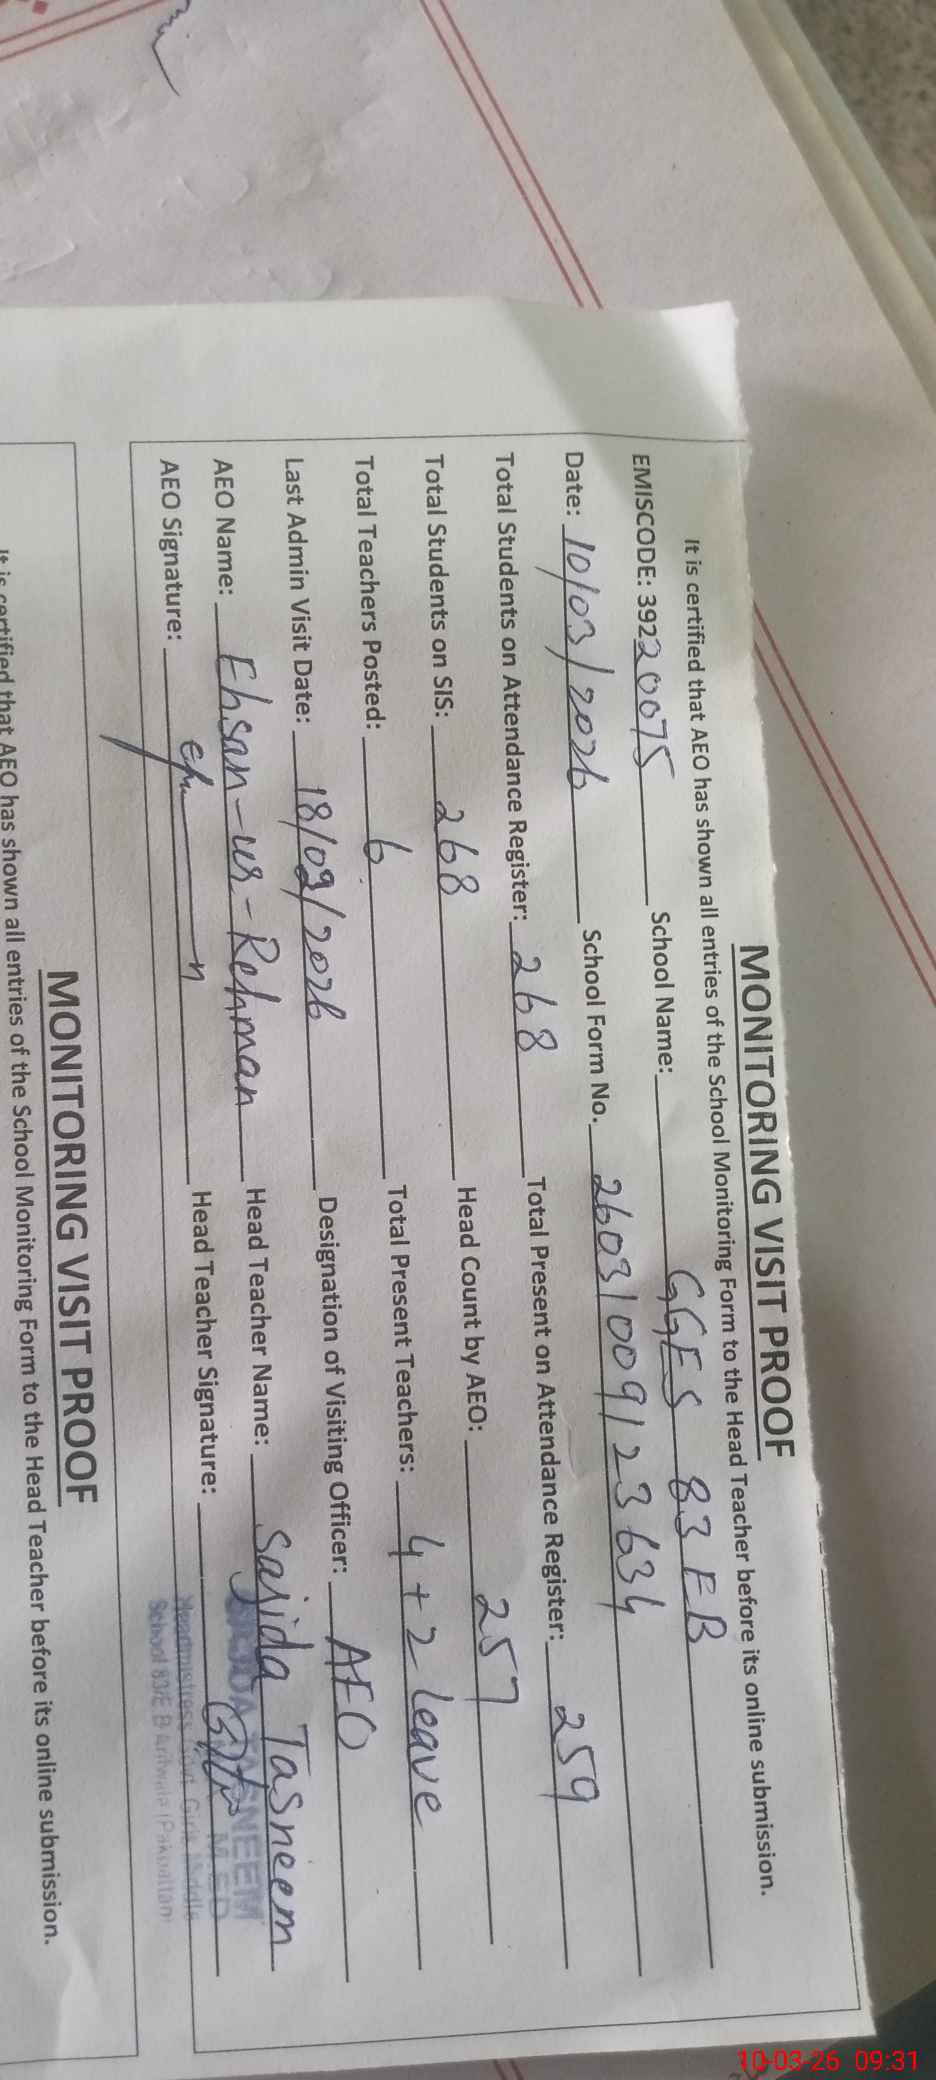 MONITORING VISIT PROOF
It is certified that AEO has shown all entries of the School Monitoring Form to the Head Teacher before its online submission.
EMISCODE: 39220075 School Name: GGES 83 EB
Date: 10/03/2026 School Form No. 26031009123634
Total Students on Attendance Register: 268 Total Present on Attendance Register: 259
Total Students on SIS: 268 Head Count by AEO: 257
Total Teachers Posted: 6 Total Present Teachers: 4 + 2 leave
Last Admin Visit Date: 18/02/2026 Designation of Visiting Officer: AEO
AEO Name: Ehsan-ur-Rehman Head Teacher Name: Sajida Tasneem
AEO Signature: Head Teacher Signature:
SAJIDA TASNEEM
Headmistress Govt. Girls Middle
School 83/E.B Arifwala (Pakpattan)
MONITORING VISIT PROOF
It is certified that AEO has shown all entries of the School Monitoring Form to the Head Teacher before its online submission.
10-03-26 09:31